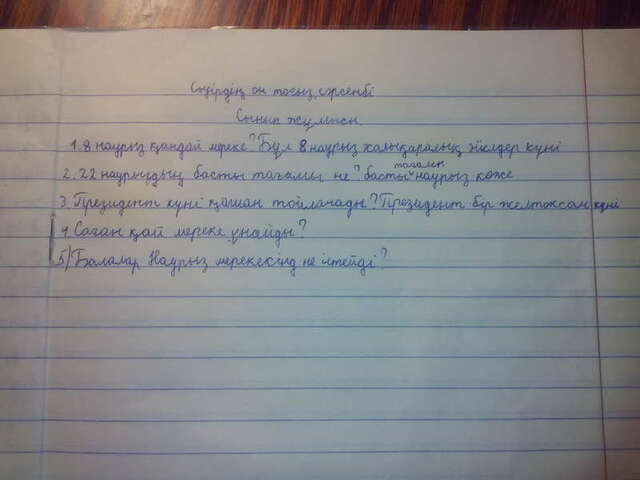 Сәуірдің он тоғыз, сәрсенбі
Сынып жұмысы
1. 8 наурыз қандай мереке? Бұл 8 наурыз халықаралық әйелдер күні
2. 22 наурыздың басты тағамы не? басты тағамы наурыз көже
3. Президент күні қашан тойланады? Президент бір желтоқсан күні
4. Саған қай мереке ұнайды?
5) Балалар Наурыз мерекекінд не істейді?